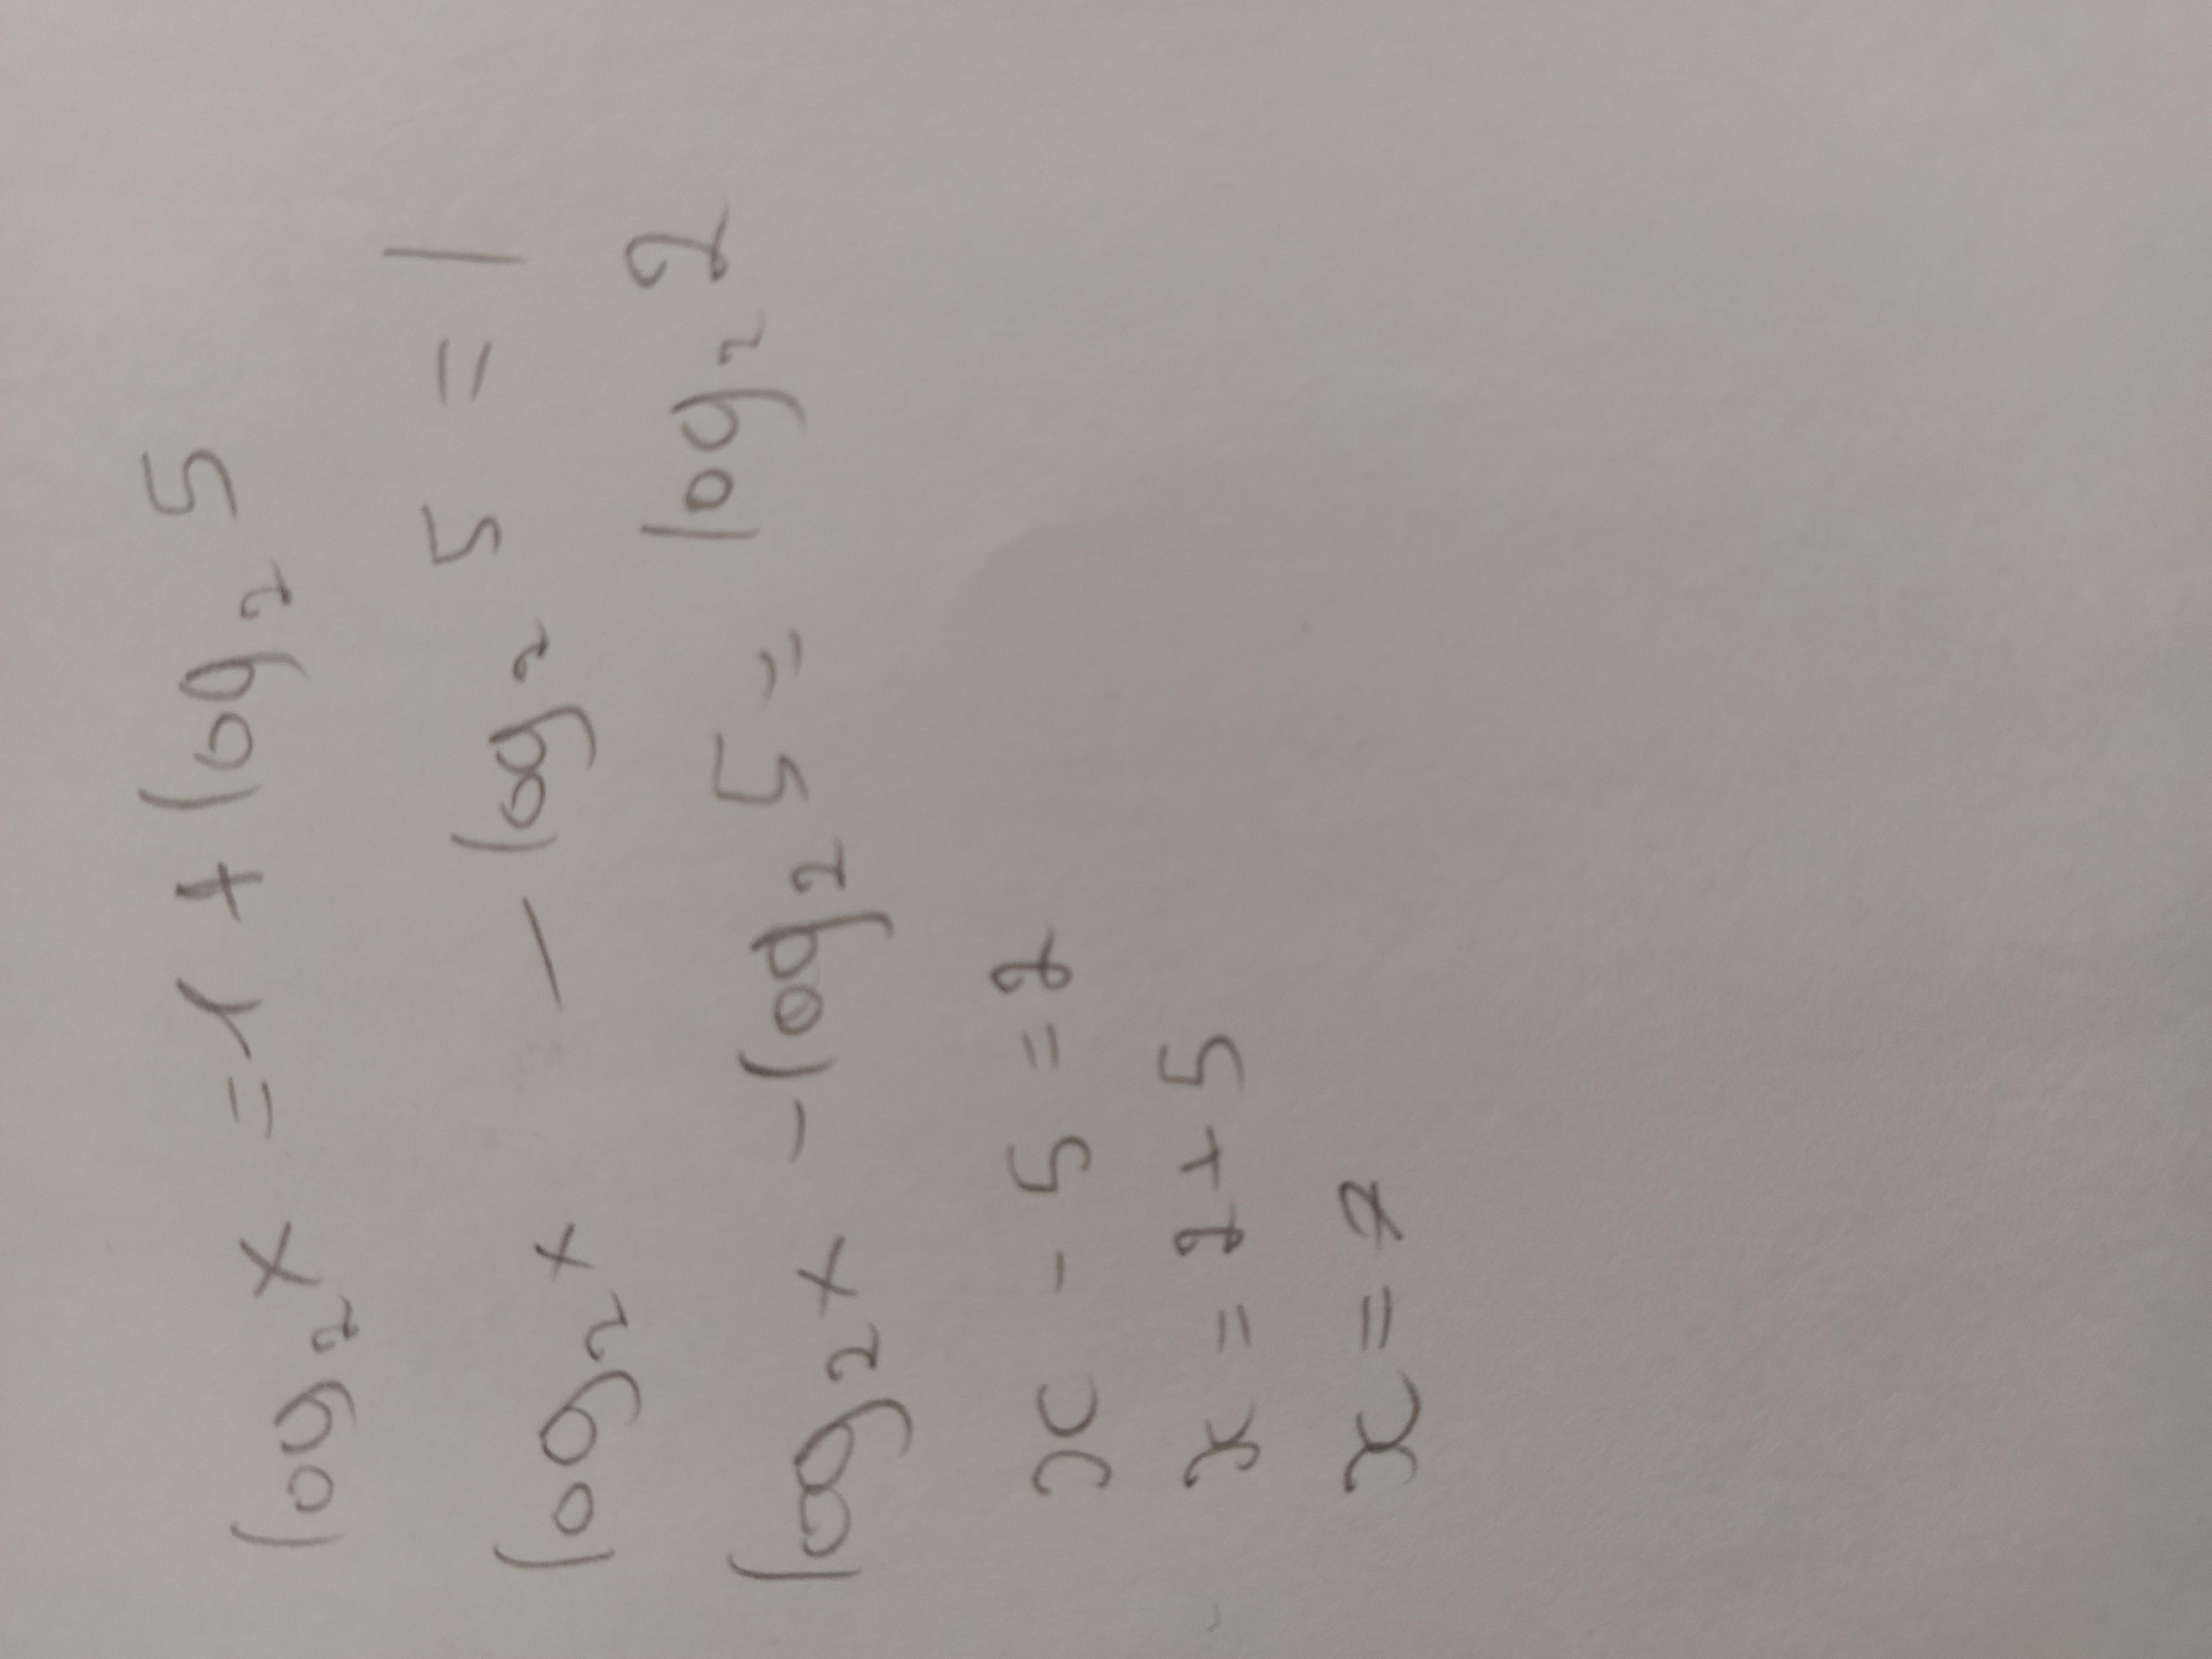 log₂x = 1 + log₂5
log₂x - log₂5 = 1
log₂x - log₂5 = log₂2
x - 5 = 2
x = 2+5
x = 7